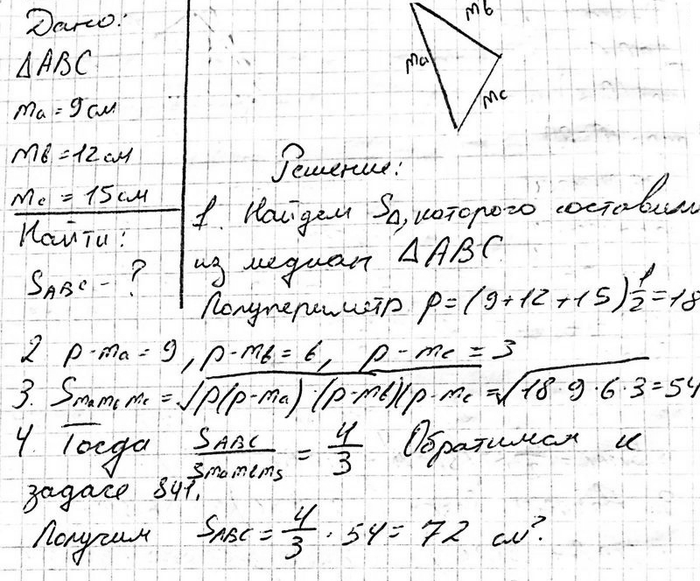 Дано:
ΔABC
ma = 9 см
mв = 12 см
mc = 15 см
Найти:
SABC - ?
mв
ma
mc
Решение:
1. Найдем SΔ, которого составим
из медиан ΔABC
Полупериметр p = (9+12+15)1/2 = 18
2 p-ma = 9, p-mв = 6, p-mc = 3
3. Smamвmc = √p(p-ma)·(p-mв)(p-mc = √18·9·6·3 = 54
4. Тогда SABC/Smamвms = 4/3 Обратимся к
задаче 841.
Получим SABC = 4/3 · 54 = 72 см².